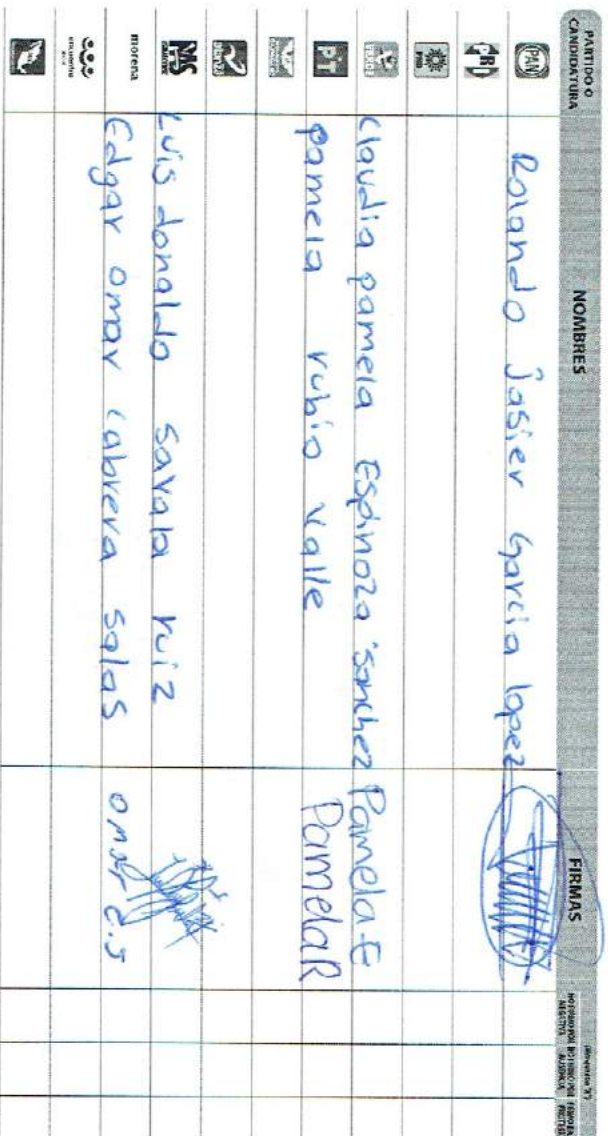 PARTIDO O CANDIDATURA NOMBRES FIRMAS
PAN Rolando Jasier Garcia lopez
PRI
PRD
VERDE Claudia pamela Espinoza sanchez Pamela-E
PT pamela rubio Valle PamelaR
morena Luis donaldo savala ruiz
encuentro Edgar omar cabrera salas omar C.S